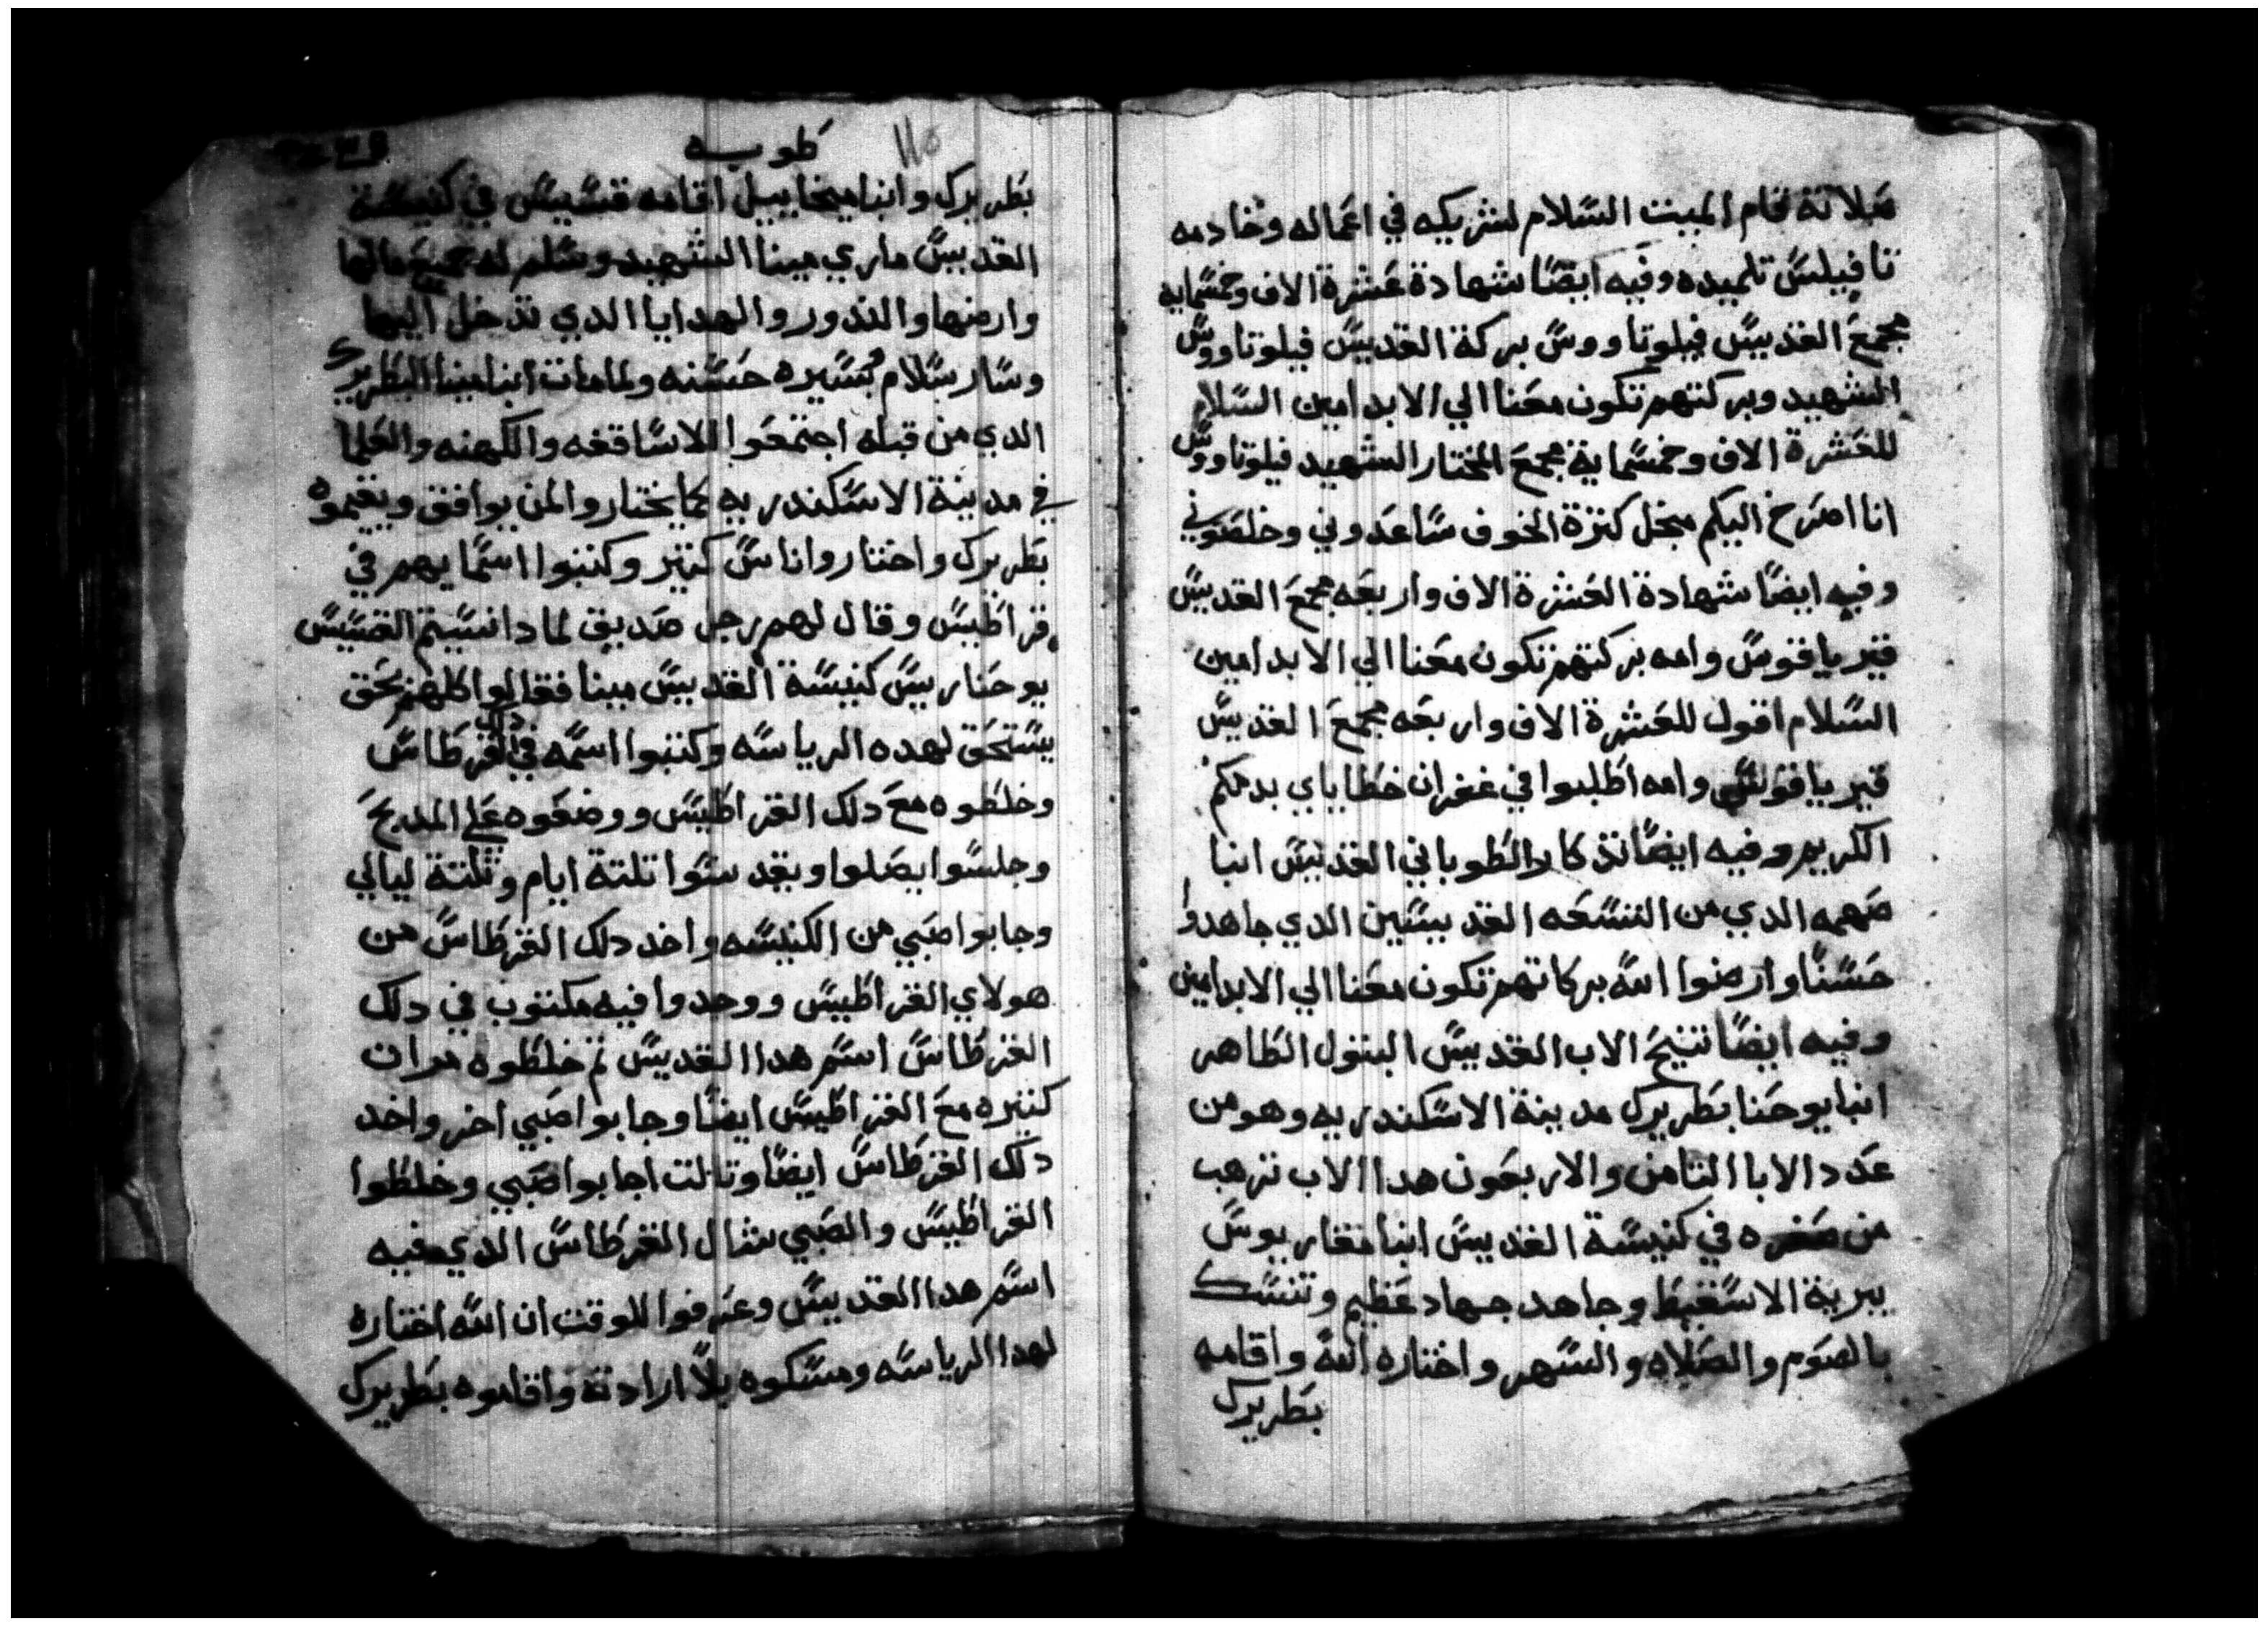 صلاته قام الميت السلام لشريكه في اعماله وخادمه
تافيلس تلميده وفيه ايضا شهادة عشرة الاف وخمسمايه
مجمع القديس فيلوتاووس بركة القديس فيلوتاووس
الشهيد وبركتهم تكون معنا الي الابد امين السلام
للعشرة الاف وخمسماية مجمع المختار الشهيد فيلوتاووس
انا اصرخ اليكم مبجل كنزة الخوف ساعدوني وخلصوني
وفيه ايضا شهادة العشرة الاف واربعه مجمع القديس
قيرياقوس وامه بركتهم تكون معنا الي الابد امين
السلام اقول للعشرة الاف واربعه مجمع القديس
قيرياقوس وامه اطلبوا في غفران خطاياي بدمكم
الكريم وفيه ايضا تدكار الطوباني القديس انبا
صهمه الدي من التسعه القديسين الدي جاهدوا
حسنا وارضوا الله بركاتهم تكون معنا الي الابد امين
وفيه ايضا تنيح الاب القديس البتول الطاهر
انبا يوحنا بطريرك مدينة الاسكندريه وهو من
عدد الابا التامن والاربعون هدا الاب ترهب
من صغره في كنيسة القديس ابنا مقاريوس
ببرية الاسقيط وجاهد جهاد عظيم وتنسك
بالصوم والصلاه والسهر واختاره الله واقامه
بطريرك
طوبه
١١٥
بطريرك وابنا ميخاييل اقامه قسيس في كنيسة
القديس ماري مينا الشهيد وسلم له جميع مالها
وارضها والندور والهدايا الدي تدخل اليها
وسار بسلام وسيره حسنه ولما مات ابنا مينا البطريرك
الدي من قبله اجتمعوا الاساقفه والكهنه والعلما
في مدينة الاسكندريه لما يختاروا لمن يوافق ويقيموه
بطريرك واختاروا ناس كتير وكتبوا اسمايهم في
قراطيس وقال لهم رجل صديق لما دا نسيتم القسيس
يوحنا ريس كنيسة القديس مينا فقالوا كلهم بحق
يستحق لهده الرياسه وكتبوا اسمه في دلك القرطاس
وخلطوه مع دلك القراطيس ووضعوه علي المدبح
وجلسوا يصلوا ويقدسوا تلتة ايام وتلتة ليالي
وجابوا صبي من الكنيسه واخد دلك القرطاس من
هولاي القراطيس ووجدوا فيه مكتوب في دلك
القرطاس اسم هدا القديس تم خلطوه مرات
كتيره مع القراطيس ايضا وجابوا صبي اخر واخد
دلك القرطاس ايضا وتالت اجابوا صبي وخلطوا
القراطيس والصبي شال القرطاس الدي فيه
اسم هدا القديس وعرفوا للوقت ان الله اختاره
لهدا الرياسه ومسكوه بلا ارادته واقاموه بطريرك